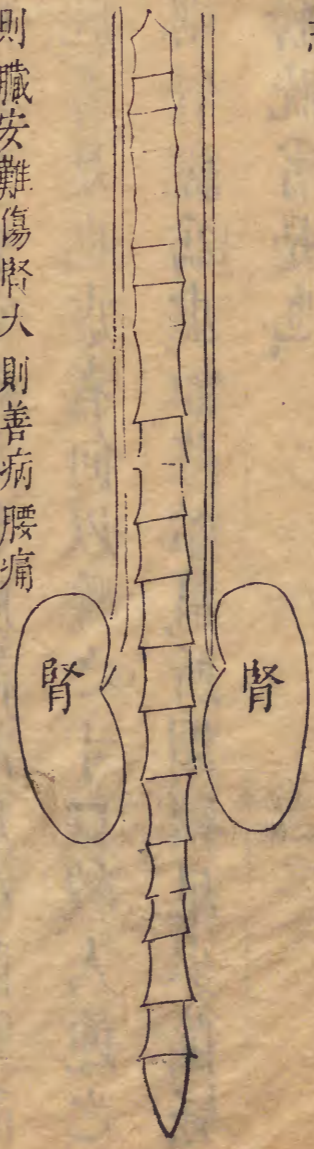 腎
腎
則臟安難傷腎大則善病腰痛